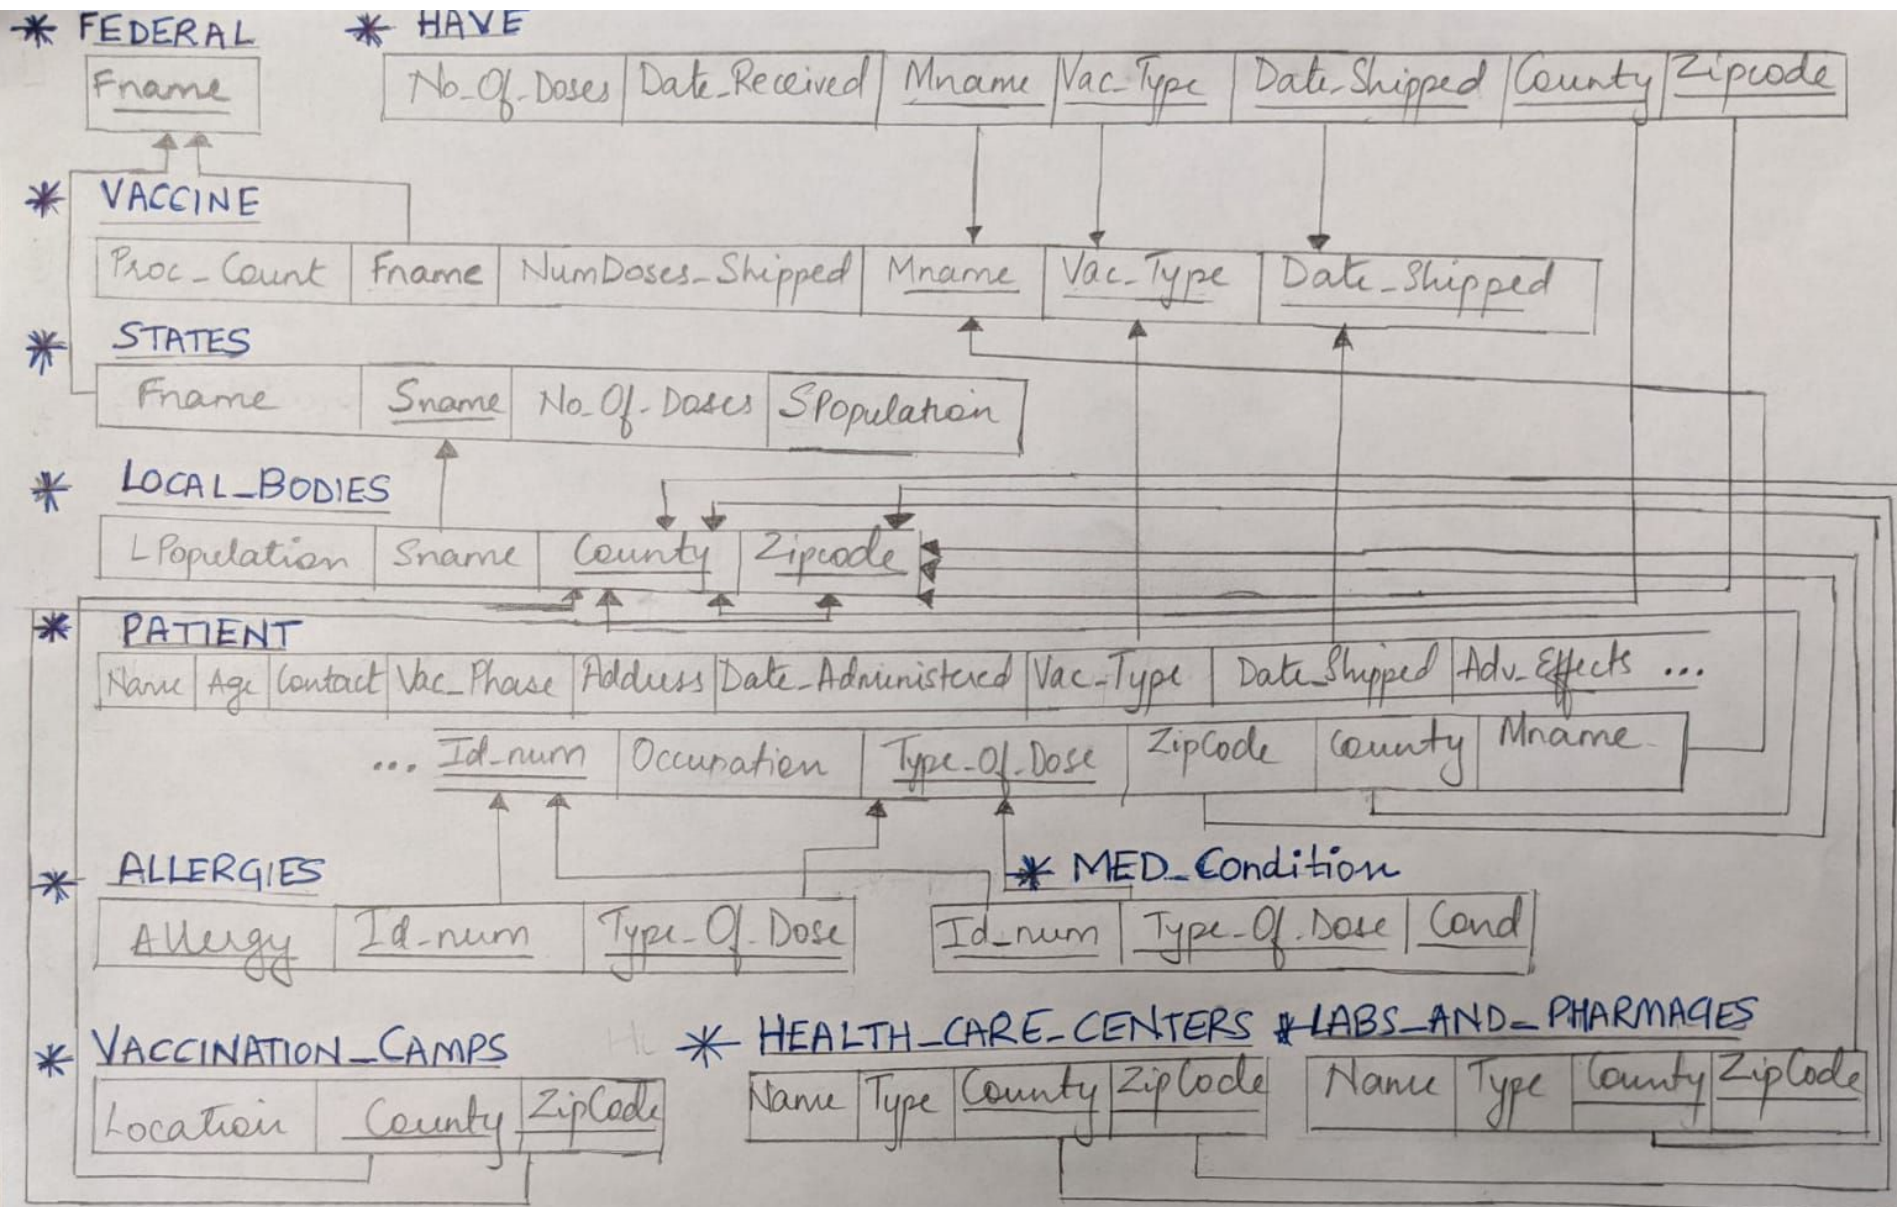 * FEDERAL * HAVE
Fname No_Of_Doses Date_Received Mname Vac_Type Date_Shipped County Zipcode
* VACCINE
Proc_Count Fname NumDoses_Shipped Mname Vac_Type Date_Shipped
* STATES
Fname Sname No_Of_Doses SPopulation
* LOCAL_BODIES
LPopulation Sname County Zipcode
* PATIENT
Name Age Contact Vac_Phase Address Date_Administered Vac_Type Date_Shipped Adv_Effects ...
... Id_num Occupation Type_Of_Dose ZipCode County Mname
* ALLERGIES * MED_Condition
Allergy Id_num Type_Of_Dose Id_num Type_Of_Dose Cond
* VACCINATION_CAMPS * HEALTH_CARE_CENTERS * LABS_AND_PHARMACIES
Location County ZipCode Name Type County ZipCode Name Type County ZipCode